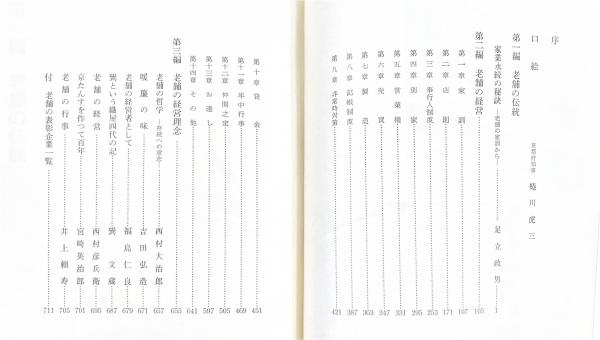 序
京都府知事 蜷川虎三
口絵
第一編 老舗の伝統
家業永続の秘訣 ―老舗の家訓から― 足立政男 1
第二編 老舗の経営 105
第一章 家訓 107
第二章 店則 171
第三章 奉行人制度 253
第四章 別家 295
第五章 営業権 331
第六章 売買 347
第七章 製造 353
第八章 記帳制度 387
第九章 非常時対策 421
第十章 貸金 451
第十一章 年中行事 469
第十二章 仲間之定 505
第十三章 お達し 597
第十四章 その他 641
第三編 老舗の経営理念 655
老舗の哲学 ―存続への意志― 西村大治郎 657
暖簾の味 吉田弘造 671
老舗の経営者として 福島仁良 679
巽という織屋四代の記 巽文蔵 687
老舗の経営 西村彦兵衛 695
京たんすを作って百年 宮崎英治郎 701
老舗の行事 井上頼寿 705
付 老舗の表彰企業一覧 711